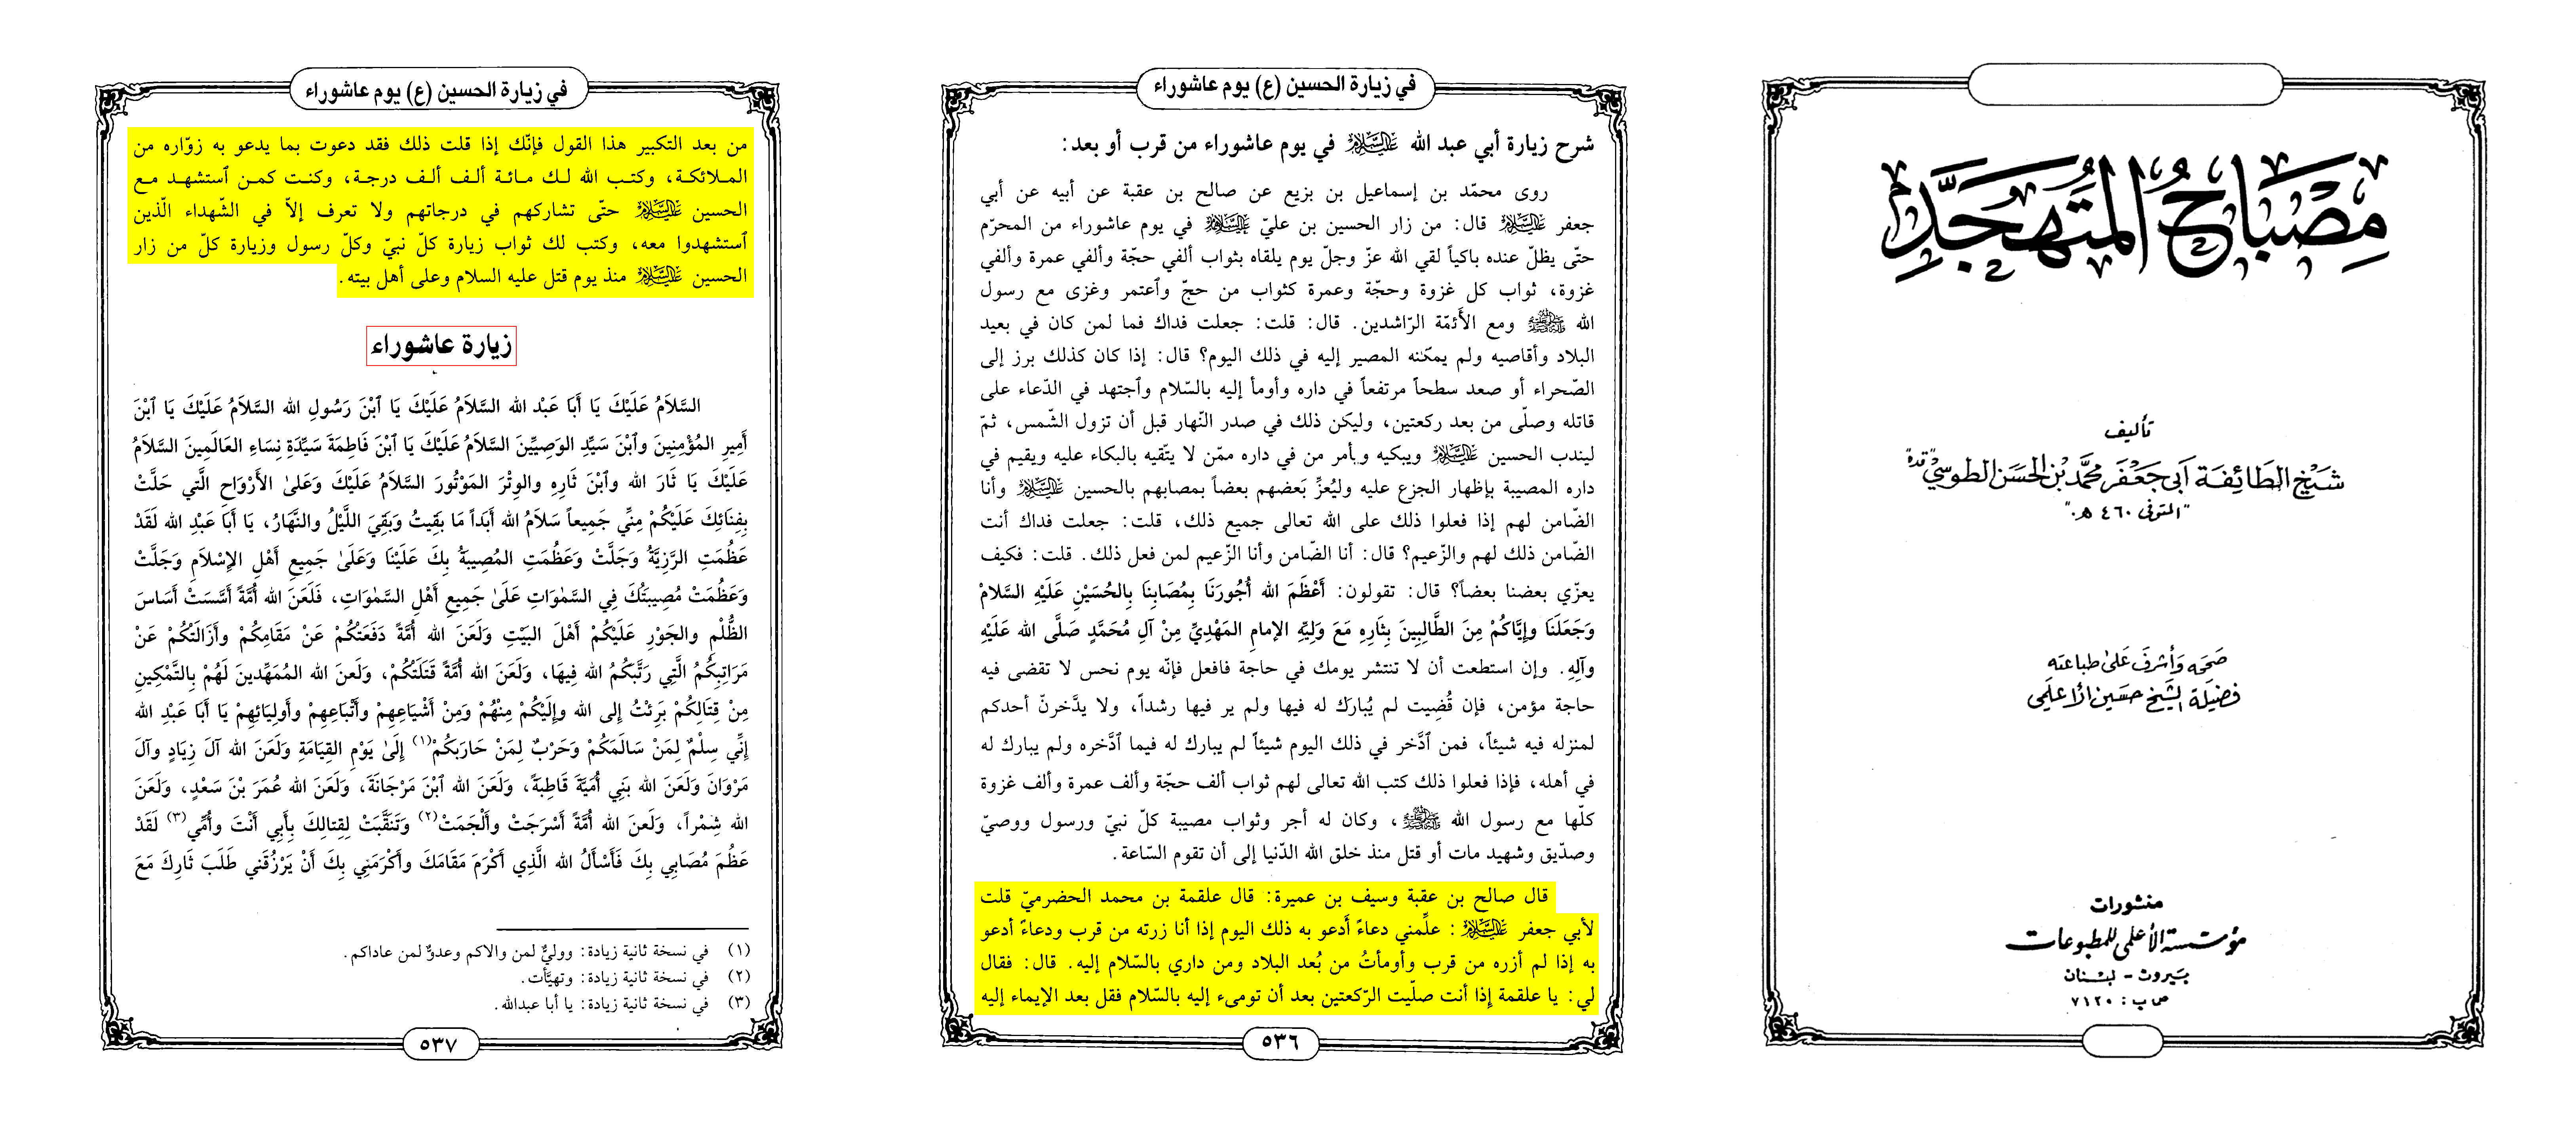 مِصْبَاحُ المُتَهَجِّدِ
تأليف
شَيْخ الطَائِفَة أَبي جَعْفَر مُحَمَّد بْن الحَسَن الطوسي "قده"
"المتوفى ٤٦٠ هـ."
صَحَّحَه وَأشرفَ عَلىٰ طباعته
فضيلة الشيخ حسَين الأعلمي
منشورات
مؤسسة الأعلمي للمطبوعات
بيروت - لبنان
ص.ب: ٧١٢٠
في زيارة الحسين (ع) يوم عاشوراء
شرح زيارة أبي عبد الله عليه السلام في يوم عاشوراء من قرب أو بعد:
روى محمّد بن إسماعيل بن بزيع عن صالح بن عقبة عن أبيه عن أبي
جعفر عليه السلام قال: من زار الحسين بن عليّ عليه السلام في يوم عاشوراء من المحرّم
حتّى يظلّ عنده باكياً لقي الله عزّ وجلّ يوم يلقاه بثواب ألفي حجّة وألفي عمرة وألفي
غزوة، ثواب كل غزوة وحجّة وعمرة كثواب من حجّ وٱعتمر وغزى مع رسول
الله صلى الله عليه وآله ومع الأَئمّة الرّاشدين. قال: قلت: جعلت فداك فما لمن كان في بعيد
البلاد وأقاصيه ولم يمكنه المصير إليه في ذلك اليوم؟ قال: إذا كان كذلك برز إلى
الصّحراء أو صعد سطحاً مرتفعاً في داره وأومأ إليه بالسّلام وٱجتهد في الدّعاء على
قاتله وصلّى من بعد ركعتين، وليكن ذلك في صدر النّهار قبل أن تزول الشّمس، ثمّ
ليندب الحسين عليه السلام ويبكيه ويأمر من في داره ممّن لا يتّقيه بالبكاء عليه ويقيم في
داره المصيبة بإظهار الجزع عليه وليُعزِّ بَعضهم بعضاً بمصابهم بالحسين عليه السلام وأنا
الضّامن لهم إذا فعلوا ذلك على الله تعالى جميع ذلك، قلت: جعلت فداك أنت
الضّامن ذلك لهم والزّعيم؟ قال: أنا الضّامن وأنا الزّعيم لمن فعل ذلك. قلت: فكيف
يعزّي بعضنا بعضاً؟ قال: تقولون: أَعْظَمَ الله أُجُورَنَا بِمُصَابِنَا بِالحُسَيْنِ عَلَيْهِ السَّلامْ
وَجَعَلَنَا وإِيَّاكُمْ مِنَ الطَّالِبِينَ بِثَارِهِ مَعَ وَلِيِّهِ الإمامِ المَهْدِيِّ مِنْ آلِ مُحَمَّدٍ صَلَّى الله عَلَيْهِ
وآلِهِ. وإن استطعت أن لا تنتشر يومك في حاجة فافعل فإنّه يوم نحس لا تقضى فيه
حاجة مؤمن، فإن قُضِيت لم يُبارك له فيها ولم ير فيها رشداً، ولا يدَّخرنّ أحدكم
لمنزله فيه شيئاً، فمن ٱدَّخر في ذلك اليوم شيئاً لم يبارك له فيما ٱدَّخره ولم يبارك له
في أهله، فإذا فعلوا ذلك كتب الله تعالى لهم ثواب ألف حجّة وألف عمرة وألف غزوة
كلّها مع رسول الله صلى الله عليه وآله، وكان له أجر وثواب مصيبة كلّ نبيّ ورسول ووصيّ
وصدّيق وشهيد مات أو قتل منذ خلق الله الدّنيا إلى أن تقوم السّاعة.
قال صالح بن عقبة وسيف بن عميرة: قال علقمة بن محمد الحضرميّ قلت
لأبي جعفر عليه السلام: علِّمني دعاءً أَدعو به ذلك اليوم إذا أنا زرته من قرب ودعاءً أدعو
به إذا لم أزره من قرب وأومأتُ من بُعد البلاد ومن داري بالسّلام إليه. قال: فقال
لي: يا علقمة إذا أنت صلّيت الرّكعتين بعد أن تومىء إليه بالسّلام فقل بعد الإيماء إليه
٥٣٦
في زيارة الحسين (ع) يوم عاشوراء
من بعد التكبير هذا القول فإنّك إذا قلت ذلك فقد دعوت بما يدعو به زوّاره من
الملائكة، وكتب الله لك مائة ألف ألف درجة، وكنت كمن ٱستشهد مع
الحسين عليه السلام حتّى تشاركهم في درجاتهم ولا تعرف إلاّ في الشّهداء الّذين
ٱستشهدوا معه، وكتب لك ثواب زيارة كلّ نبيّ وكلّ رسول وزيارة كلّ من زار
الحسين عليه السلام منذ يوم قتل عليه السلام وعلى أهل بيته.
زيارة عاشوراء
السَّلاَمُ عَلَيْكَ يَا أَبَا عَبْد الله السَّلاَمُ عَلَيْكَ يَا ٱبْنَ رَسُولِ الله السَّلاَمُ عَلَيْكَ يَا ٱبْنَ
أَمِيرِ المُؤْمِنِينَ وٱبْنَ سَيِّدِ الوَصِيِّينَ السَّلاَمُ عَلَيْكَ يَا ٱبْنَ فَاطِمَةَ سَيِّدَةِ نِسَاءِ العَالَمِينَ السَّلاَمُ
عَلَيْكَ يَا ثَارَ الله وٱبْنَ ثَارِهِ والوِتْرَ المَوْتُورَ السَّلاَمُ عَلَيْكَ وَعَلىٰ الأَرْوَاحِ الَّتي حَلَّتْ
بِفِنَائِكَ عَلَيْكُمْ مِنِّي جَمِيعاً سَلاَمُ الله أَبَداً مَا بَقِيتُ وَبَقِيَ اللَّيْلُ والنَّهَارُ، يَا أَبَا عَبْدِ الله لَقَدْ
عَظُمَتِ الرَّزِيَّةُ وَجَلَّتْ وَعَظُمَتِ المُصِيبَةُ بِكَ عَلَيْنَا وَعَلَىٰ جَمِيعِ أَهْلِ الإِسْلاَمِ وَجَلَّتْ
وَعَظُمَتْ مُصِيبَتُكَ فِي السَّمٰوَاتِ عَلَىٰ جَمِيعِ أَهْلِ السَّمٰوَاتِ، فَلَعَنَ الله أُمَّةً أَسَّسَتْ أَسَاسَ
الظُّلْمِ والجَوْرِ عَلَيْكُمْ أَهْلَ البَيْتِ وَلَعَنَ الله أُمَّةً دَفَعَتْكُمْ عَنْ مَقَامِكُمْ وأَزَالَتْكُمْ عَنْ
مَرَاتِبِكُمُ الَّتِي رَتَّبَكُمُ الله فِيهَا، وَلَعَنَ الله أُمَّةً قَتَلَتْكُمْ، وَلَعنَ الله المُمَهِّدينَ لَهُمْ بِالتَّمْكِينِ
مِنْ قِتَالِكُمْ بَرِئْتُ إِلى الله وإِلَيْكُمْ مِنْهُمْ وَمِنْ أَشْيَاعِهِمْ وأَتْبَاعِهِمْ وأَولِيَائِهِمْ يَا أَبَا عَبْدِ الله
إِنِّي سِلْمٌ لِمَنْ سَالَمَكُمْ وَحَرْبٌ لِمَنْ حَارَبَكُمْ(١) إِلَىٰ يَوْمِ القِيَامَةِ وَلَعَنَ الله آلَ زِيَادٍ وآلَ
مَرْوَانَ وَلَعَنَ الله بَنِي أُمَيَّةَ قَاطِبَةً، وَلَعَنَ الله ٱبْنَ مَرْجَانَةَ، وَلَعَنَ الله عُمَرَ بْنَ سَعْدٍ، وَلَعَنَ
الله شِمْراً، وَلَعنَ الله أُمَّةً أَسْرَجَتْ وأَلْجَمَتْ(٢) وَتَنَقَّبَتْ لِقِتالِكَ بِأَبِي أَنْتَ وأُمِّي(٣) لَقَدْ
عَظُمَ مُصَابِي بِكَ فَأَسْأَلُ الله الَّذِي أَكْرَمَ مَقَامَكَ وأَكْرَمَنِي بِكَ أَنْ يَرْزُقَني طَلَبَ ثَارِكَ مَعَ
(١) في نسخة ثانية زيادة: ووليٌّ لمن والاكم وعدوٌّ لمن عاداكم.
(٢) في نسخة ثانية زيادة: وتهيَّأت.
(٣) في نسخة ثانية زيادة: يا أبا عبدالله.
٥٣٧